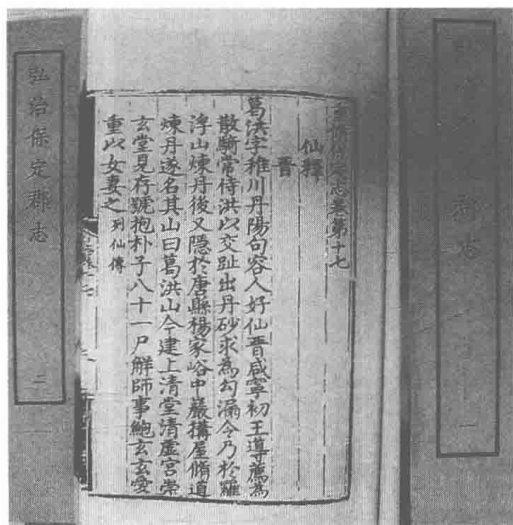 郡志
一
志卷第十七
仙釋
晋
葛洪字稚川丹陽句容人好仙晋咸寧初王導薦爲
散騎常侍洪以交趾出丹砂求爲勾漏令乃於羅
浮山煉丹後又隱於唐縣楊家峪中巖搆屋脩道
煉丹遂名其山曰葛洪山今建上清堂清虛宮崇
玄堂見存號抱朴子八十一尸解師事鮑玄玄愛
重以女妻之列仙傳
弘治保定郡志
二